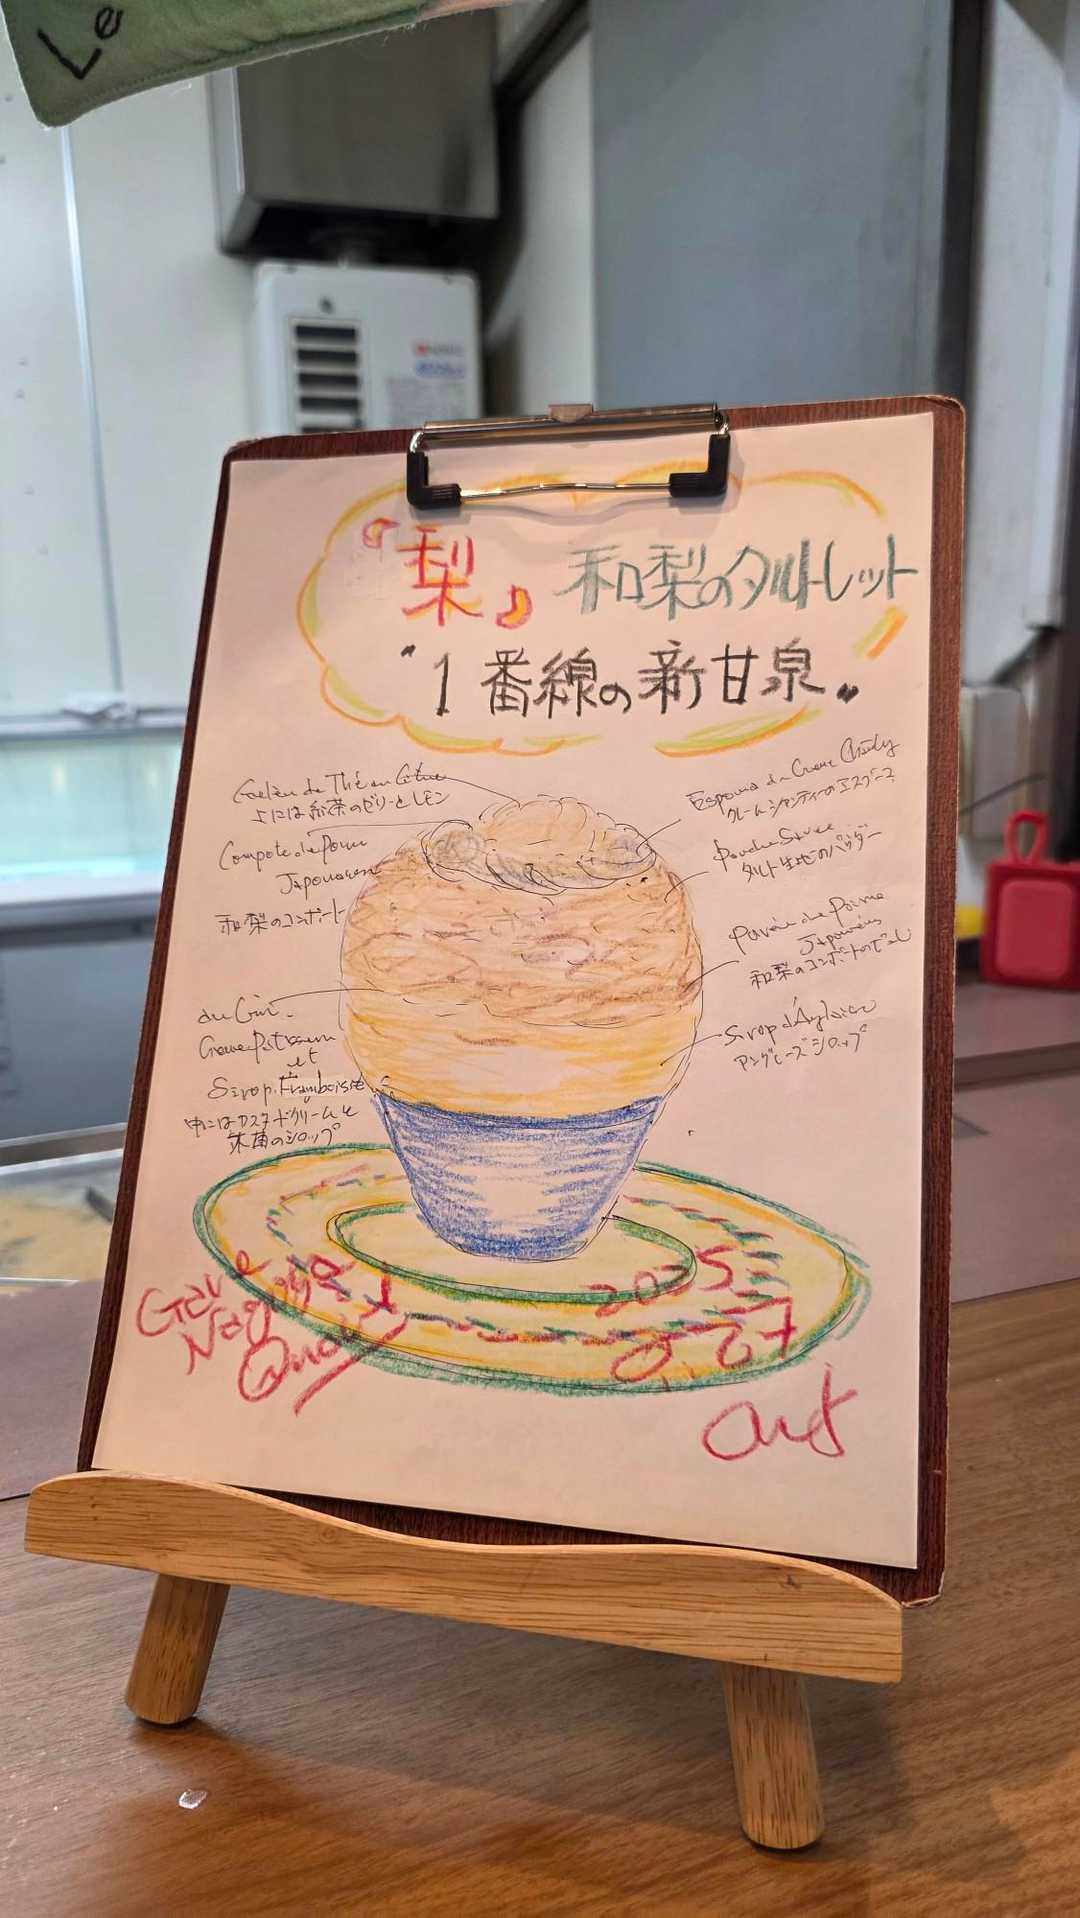 Le
『梨』 和梨のタルトレット
"1番線の新甘泉"
Gelée de Thé au Citron
上には紅茶のゼリーとレモン
Compote de Poire
Japonaise
和梨のコンポート
du Cœur.
Crème Patissière
et
Sirop Framboise
中にはカスタードクリームと
木苺のシロップ
Espuma de Crème Chantilly
クレームシャンティーのエスプーマ
Poudre Sucrée
タルト生地のパウダー
Purée de Poire
Japonaise
和梨のコンポートのピュレ
Sirop d'Anglaise
アングレーズシロップ
Gare
Nagoya
Quai 1
2025
Art